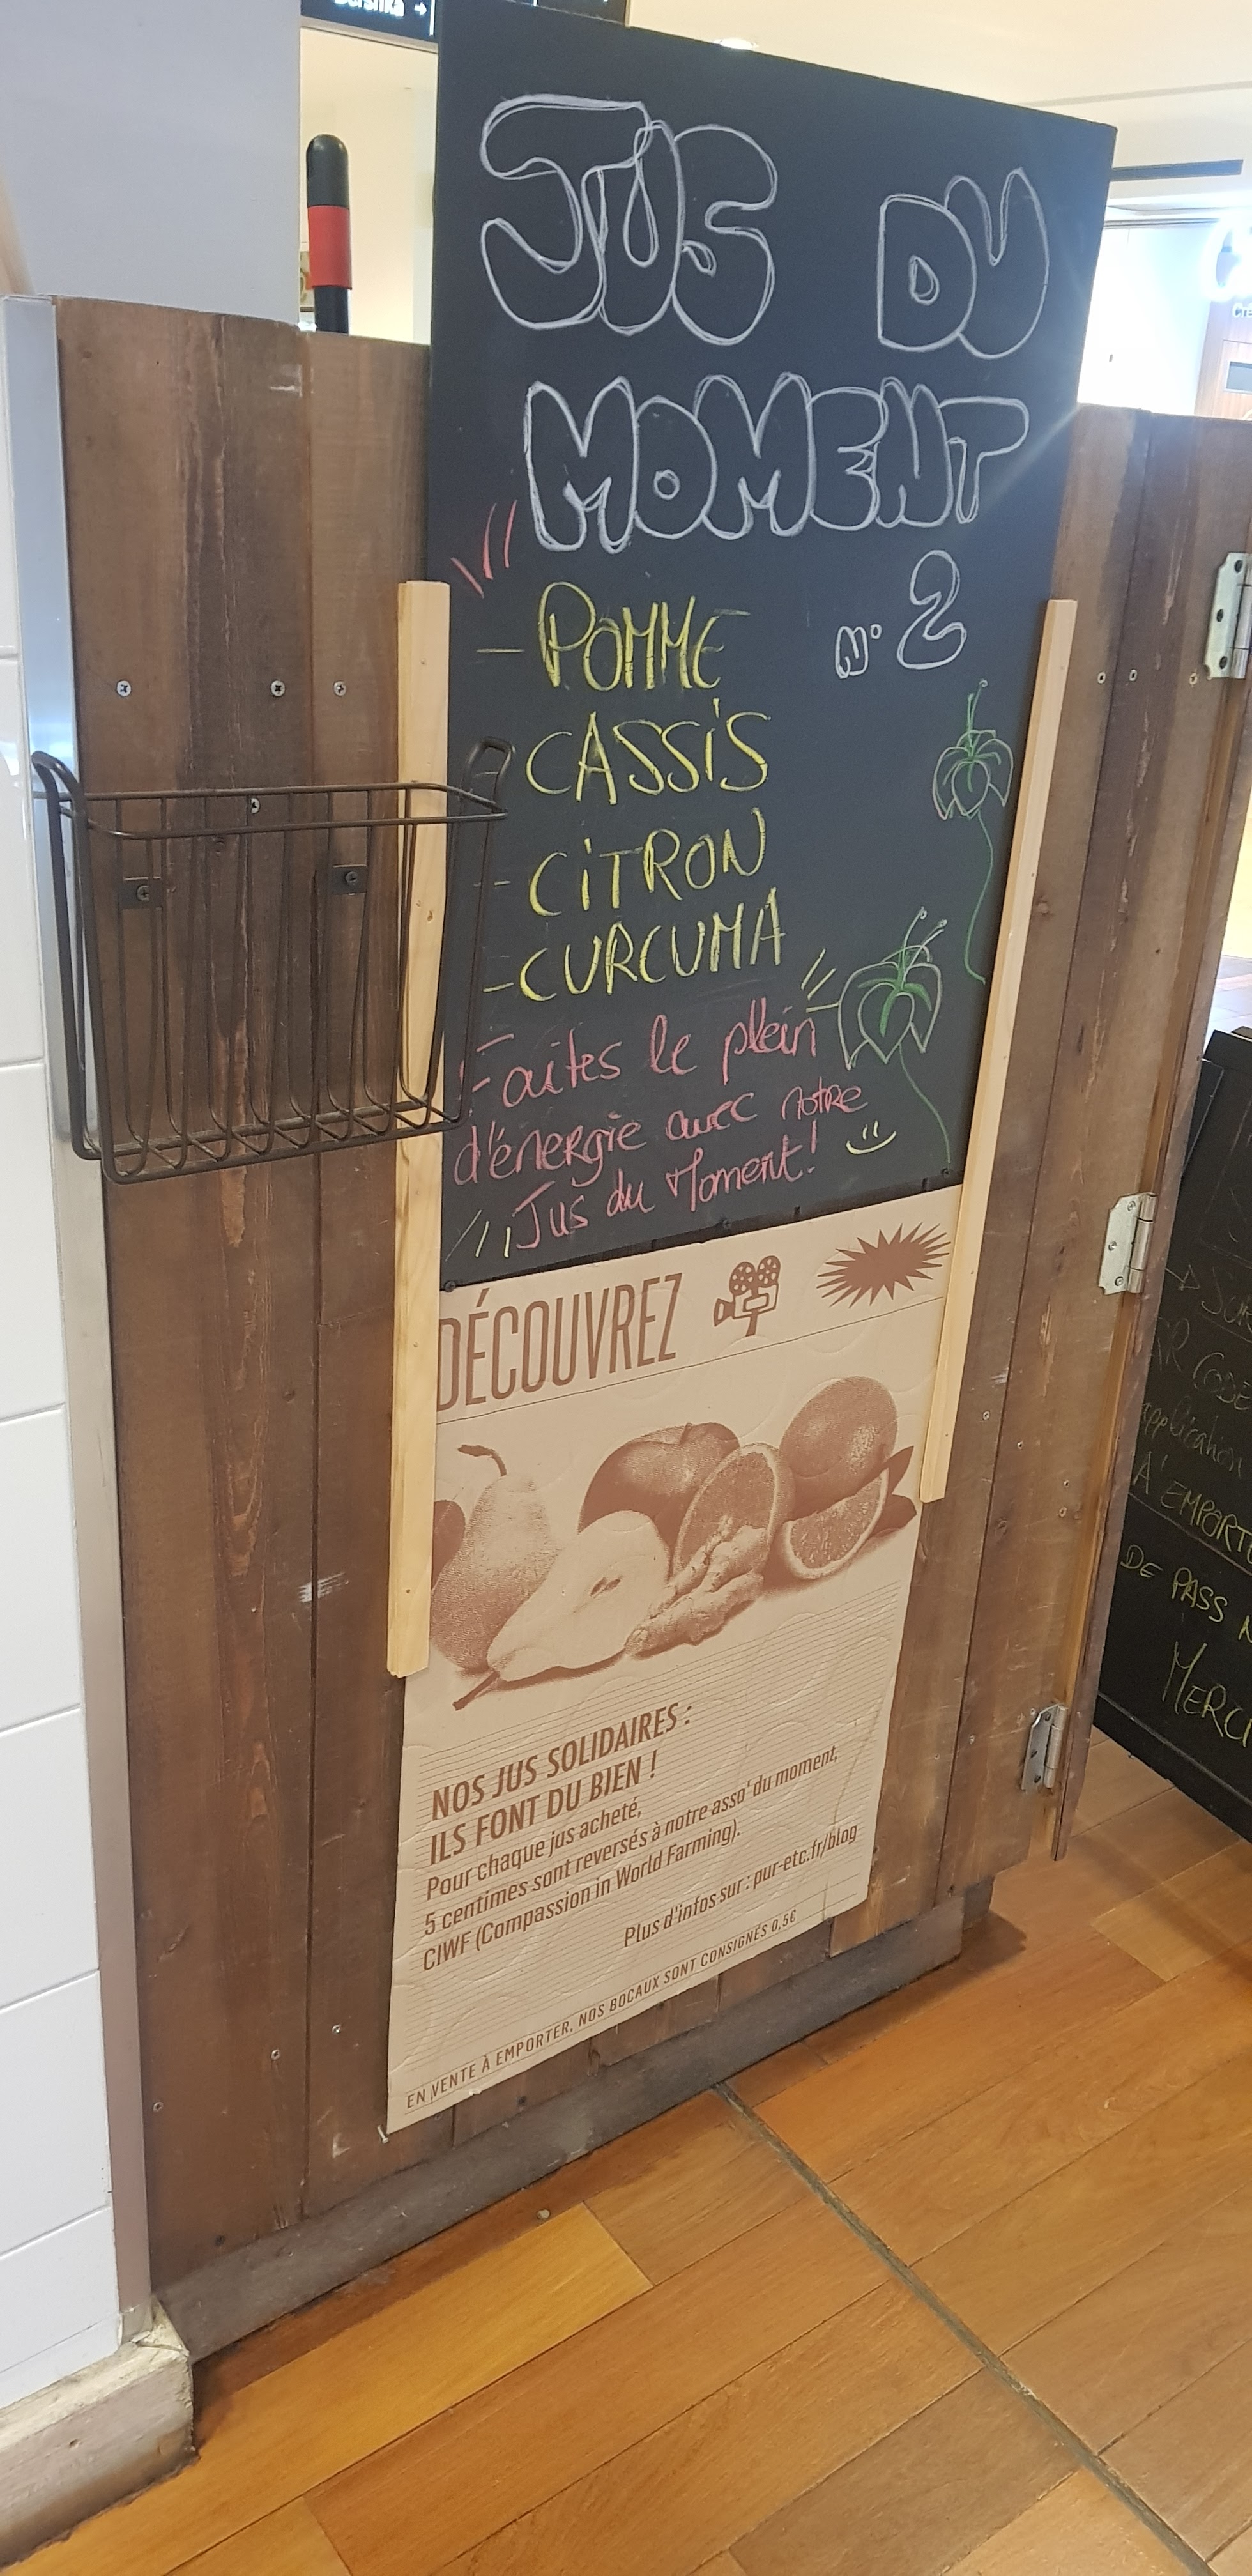 Bershka →
JUS DU
MOMENT
N° 2
- POMME
- CASSIS
- CITRON
- CURCUMA
Faites le plein
d'énergie avec notre
Jus du Moment!
DÉCOUVREZ
NOS JUS SOLIDAIRES :
ILS FONT DU BIEN !
Pour chaque jus acheté,
5 centimes sont reversés à notre asso' du moment,
CIWF (Compassion in World Farming).
Plus d'infos sur : pur-etc.fr/blog
EN VENTE À EMPORTER, NOS BOCAUX SONT CONSIGNÉS 0,5€
→ SUR
CODE
application
A EMPORTE
DE PASS
MERCI